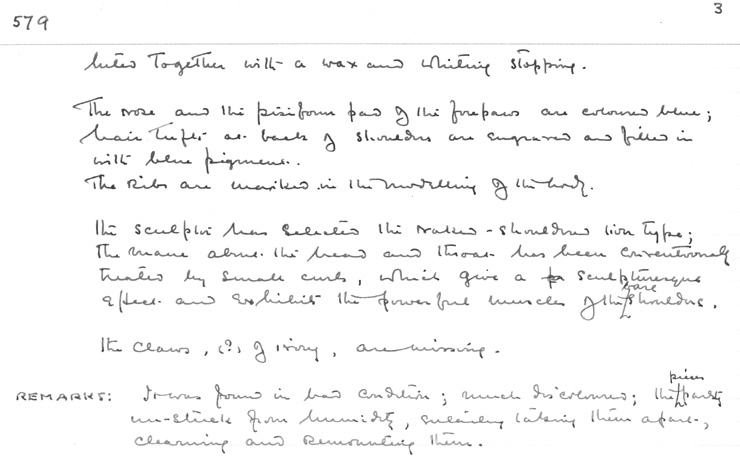 3
579
luted together with a wax and whiting stopping.
The nose and the pisiform pad of the forepaws are coloured blue;
hair tufts at back of shoulders are engraved and filled in
with blue pigment..
The Ribs are marked in the modelling of the body.
The sculptor has selected the naked-shouldered lion type;
the mane about the head and throat has been conventionally
treated by small curls, which give a sculpturesque
effect and exhibits the powerful muscles of the bare shoulders.
The claws, (?) of ivory, are missing.
REMARKS: It was found in bad condition; much discoloured; the pieces partly
un-stuck from humidity, entailing taking them apart,
cleaning and remounting them.